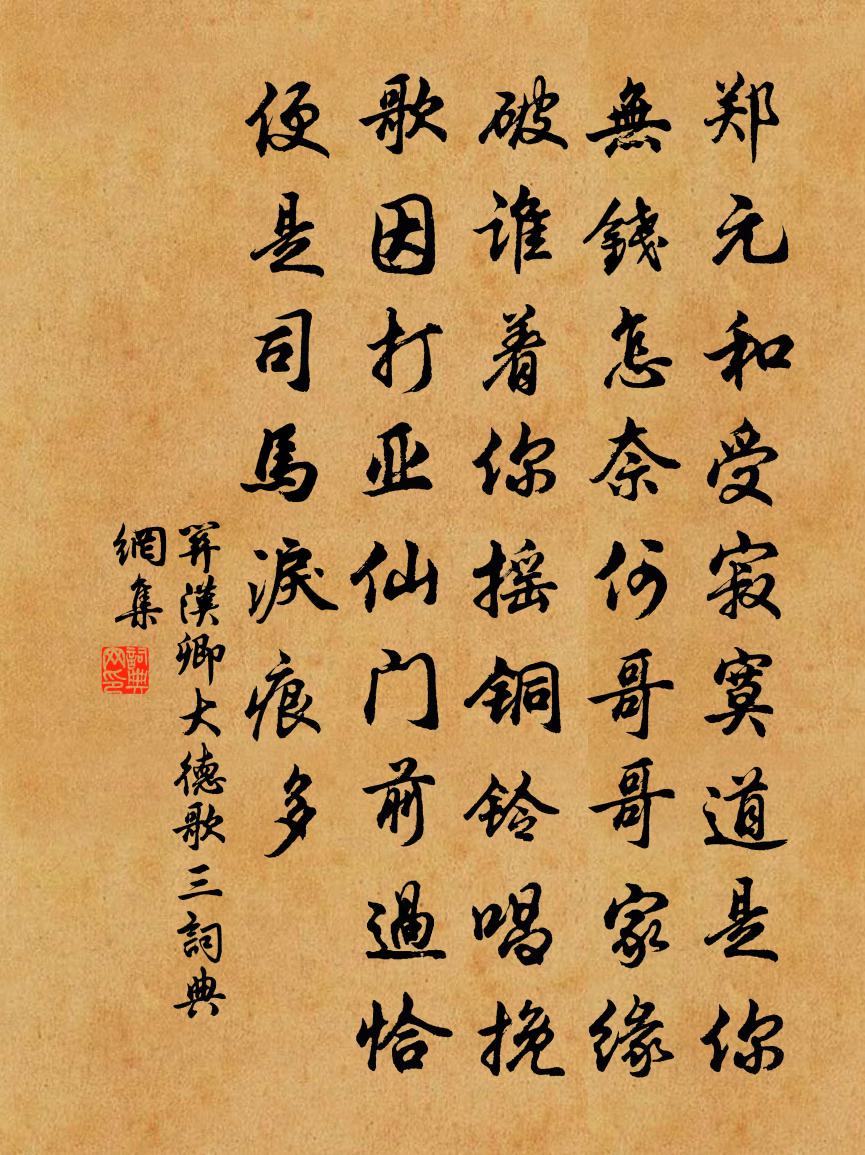 郑元和受寂寞道是你
無錢怎奈何哥哥家缘
破谁着你摇铜铃唱挽
歌因打亚仙门前過恰
便是司馬淚痕多
関漢卿大德歌三詞典
網集
詞典网印